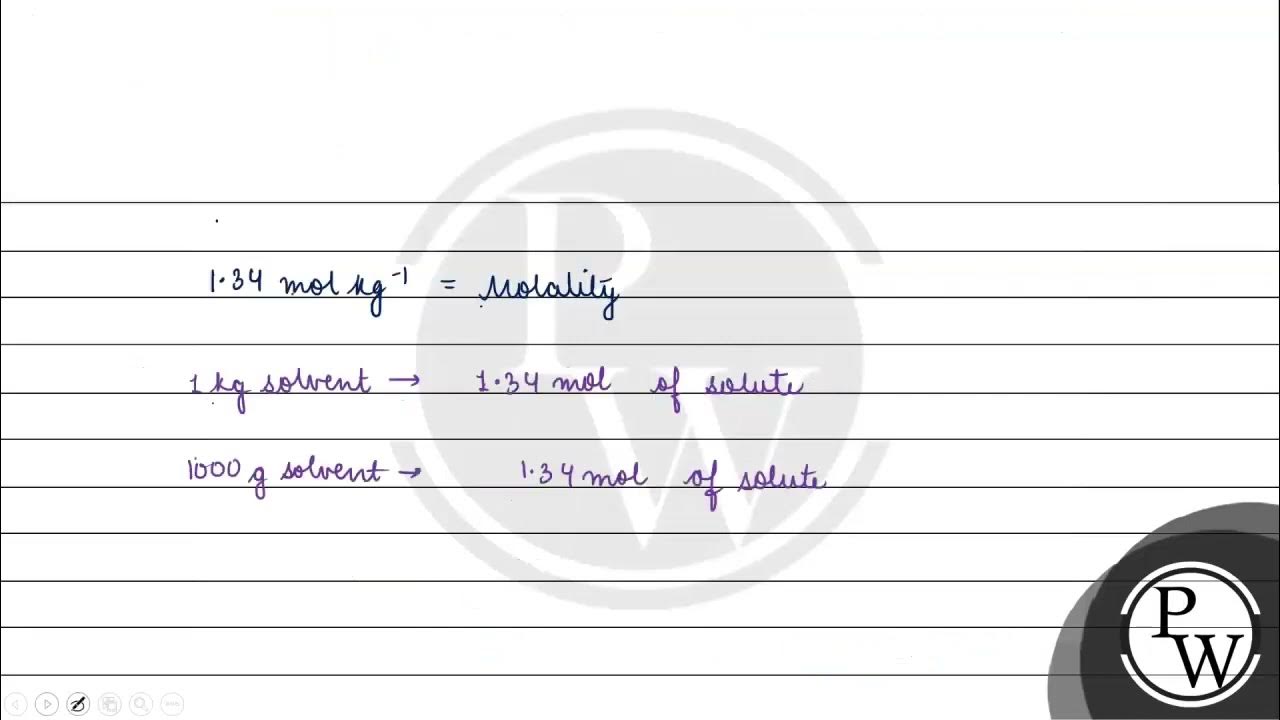 1.34 mol kg⁻¹ = Molality
1 kg solvent → 1.34 mol of solute
1000 g solvent → 1.34 mol of solute
P
W
P
W